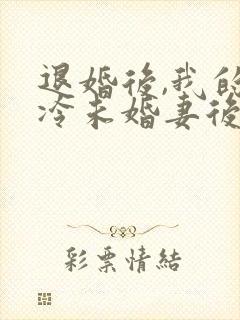 退婚後,我的
冷未婚妻後
彩票情結